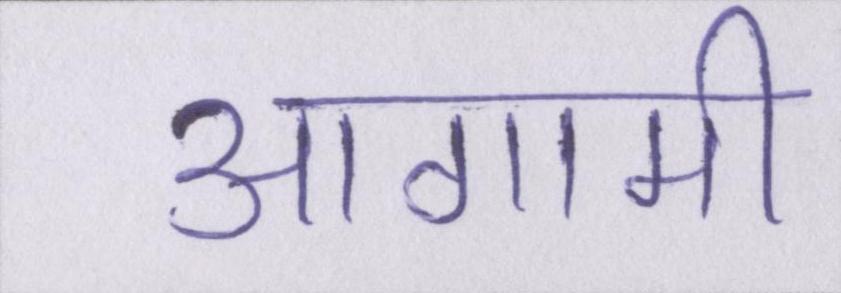 आगामी